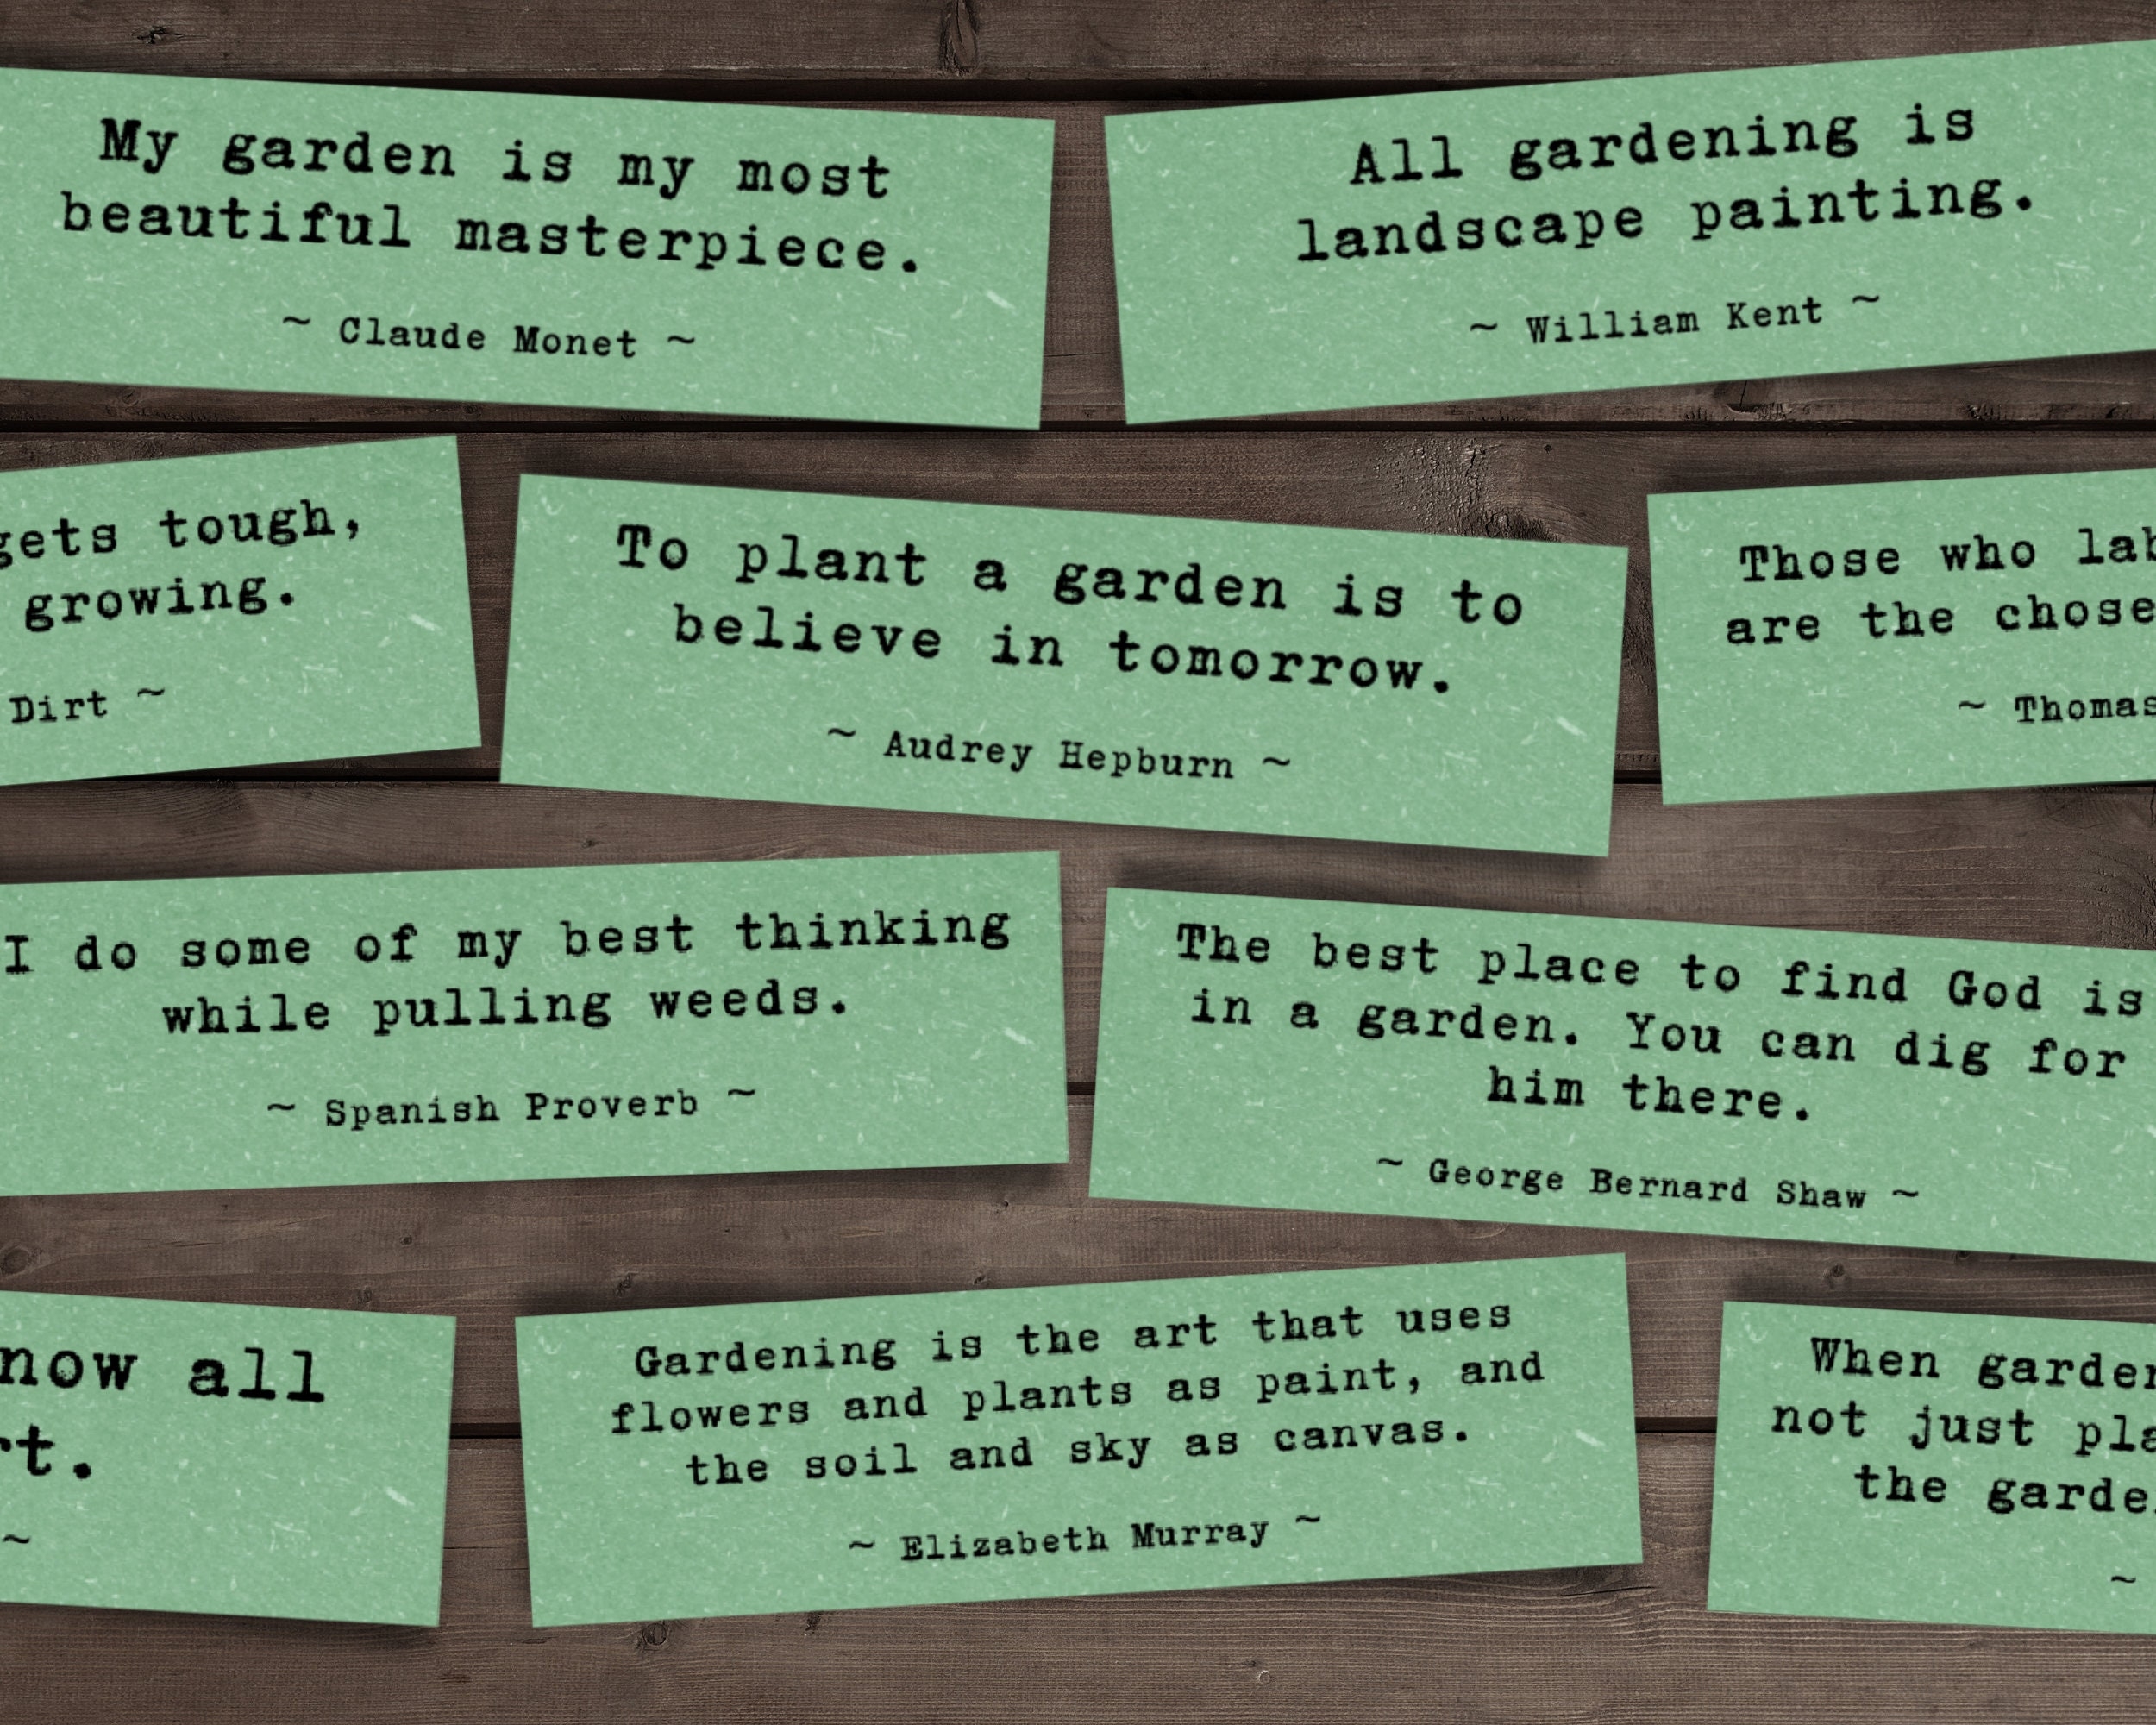 My garden is my most
beautiful masterpiece.
~ Claude Monet ~
All gardening is
landscape painting.
~ William Kent ~
gets tough,
growing.
Dirt ~
To plant a garden is to
believe in tomorrow.
~ Audrey Hepburn ~
Those who
are the
~ Thomas
I do some of my best thinking
while pulling weeds.
~ Spanish Proverb ~
The best place to find God is
in a garden. You can dig for
him there.
~ George Bernard Shaw ~
all
~
Gardening is the art that uses
flowers and plants as paint, and
the soil and sky as canvas.
~ Elizabeth Murray ~
When
not just
the
~